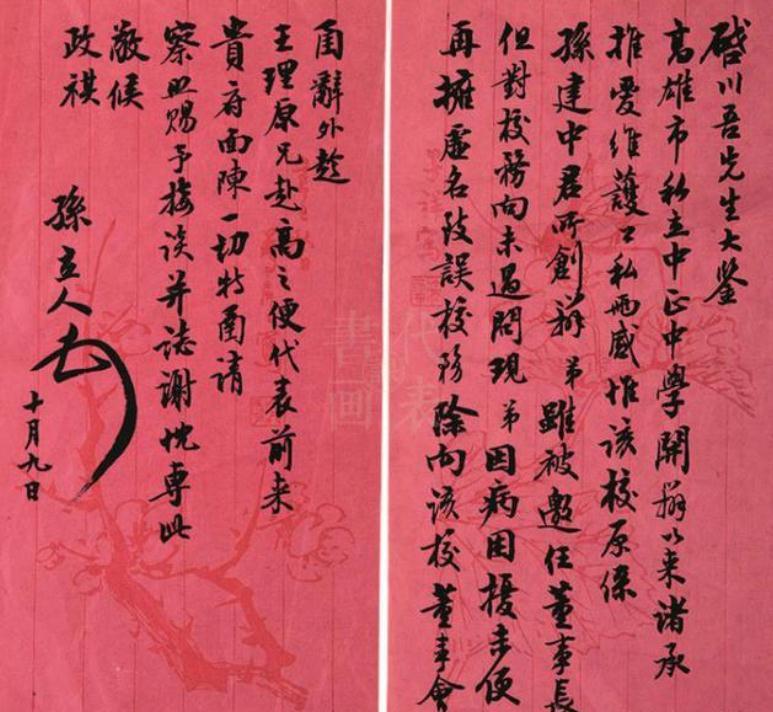 啓川吾先生大鑒
高雄市私立中正中學開辦以來諸承
推愛維護公私兩感惟該校原係
孫建中君所創辦弟雖被邀任董事長
但對校務向未過問現弟因病困擾未便
再擁虛名致誤校務除向該校董事會
函辭外趁
王理原兄赴高之便代表前來
貴府面陳一切特函請
察照賜予接談并誌謝忱專此
敬候
政祺
孫立人
十月九日
代表
書画